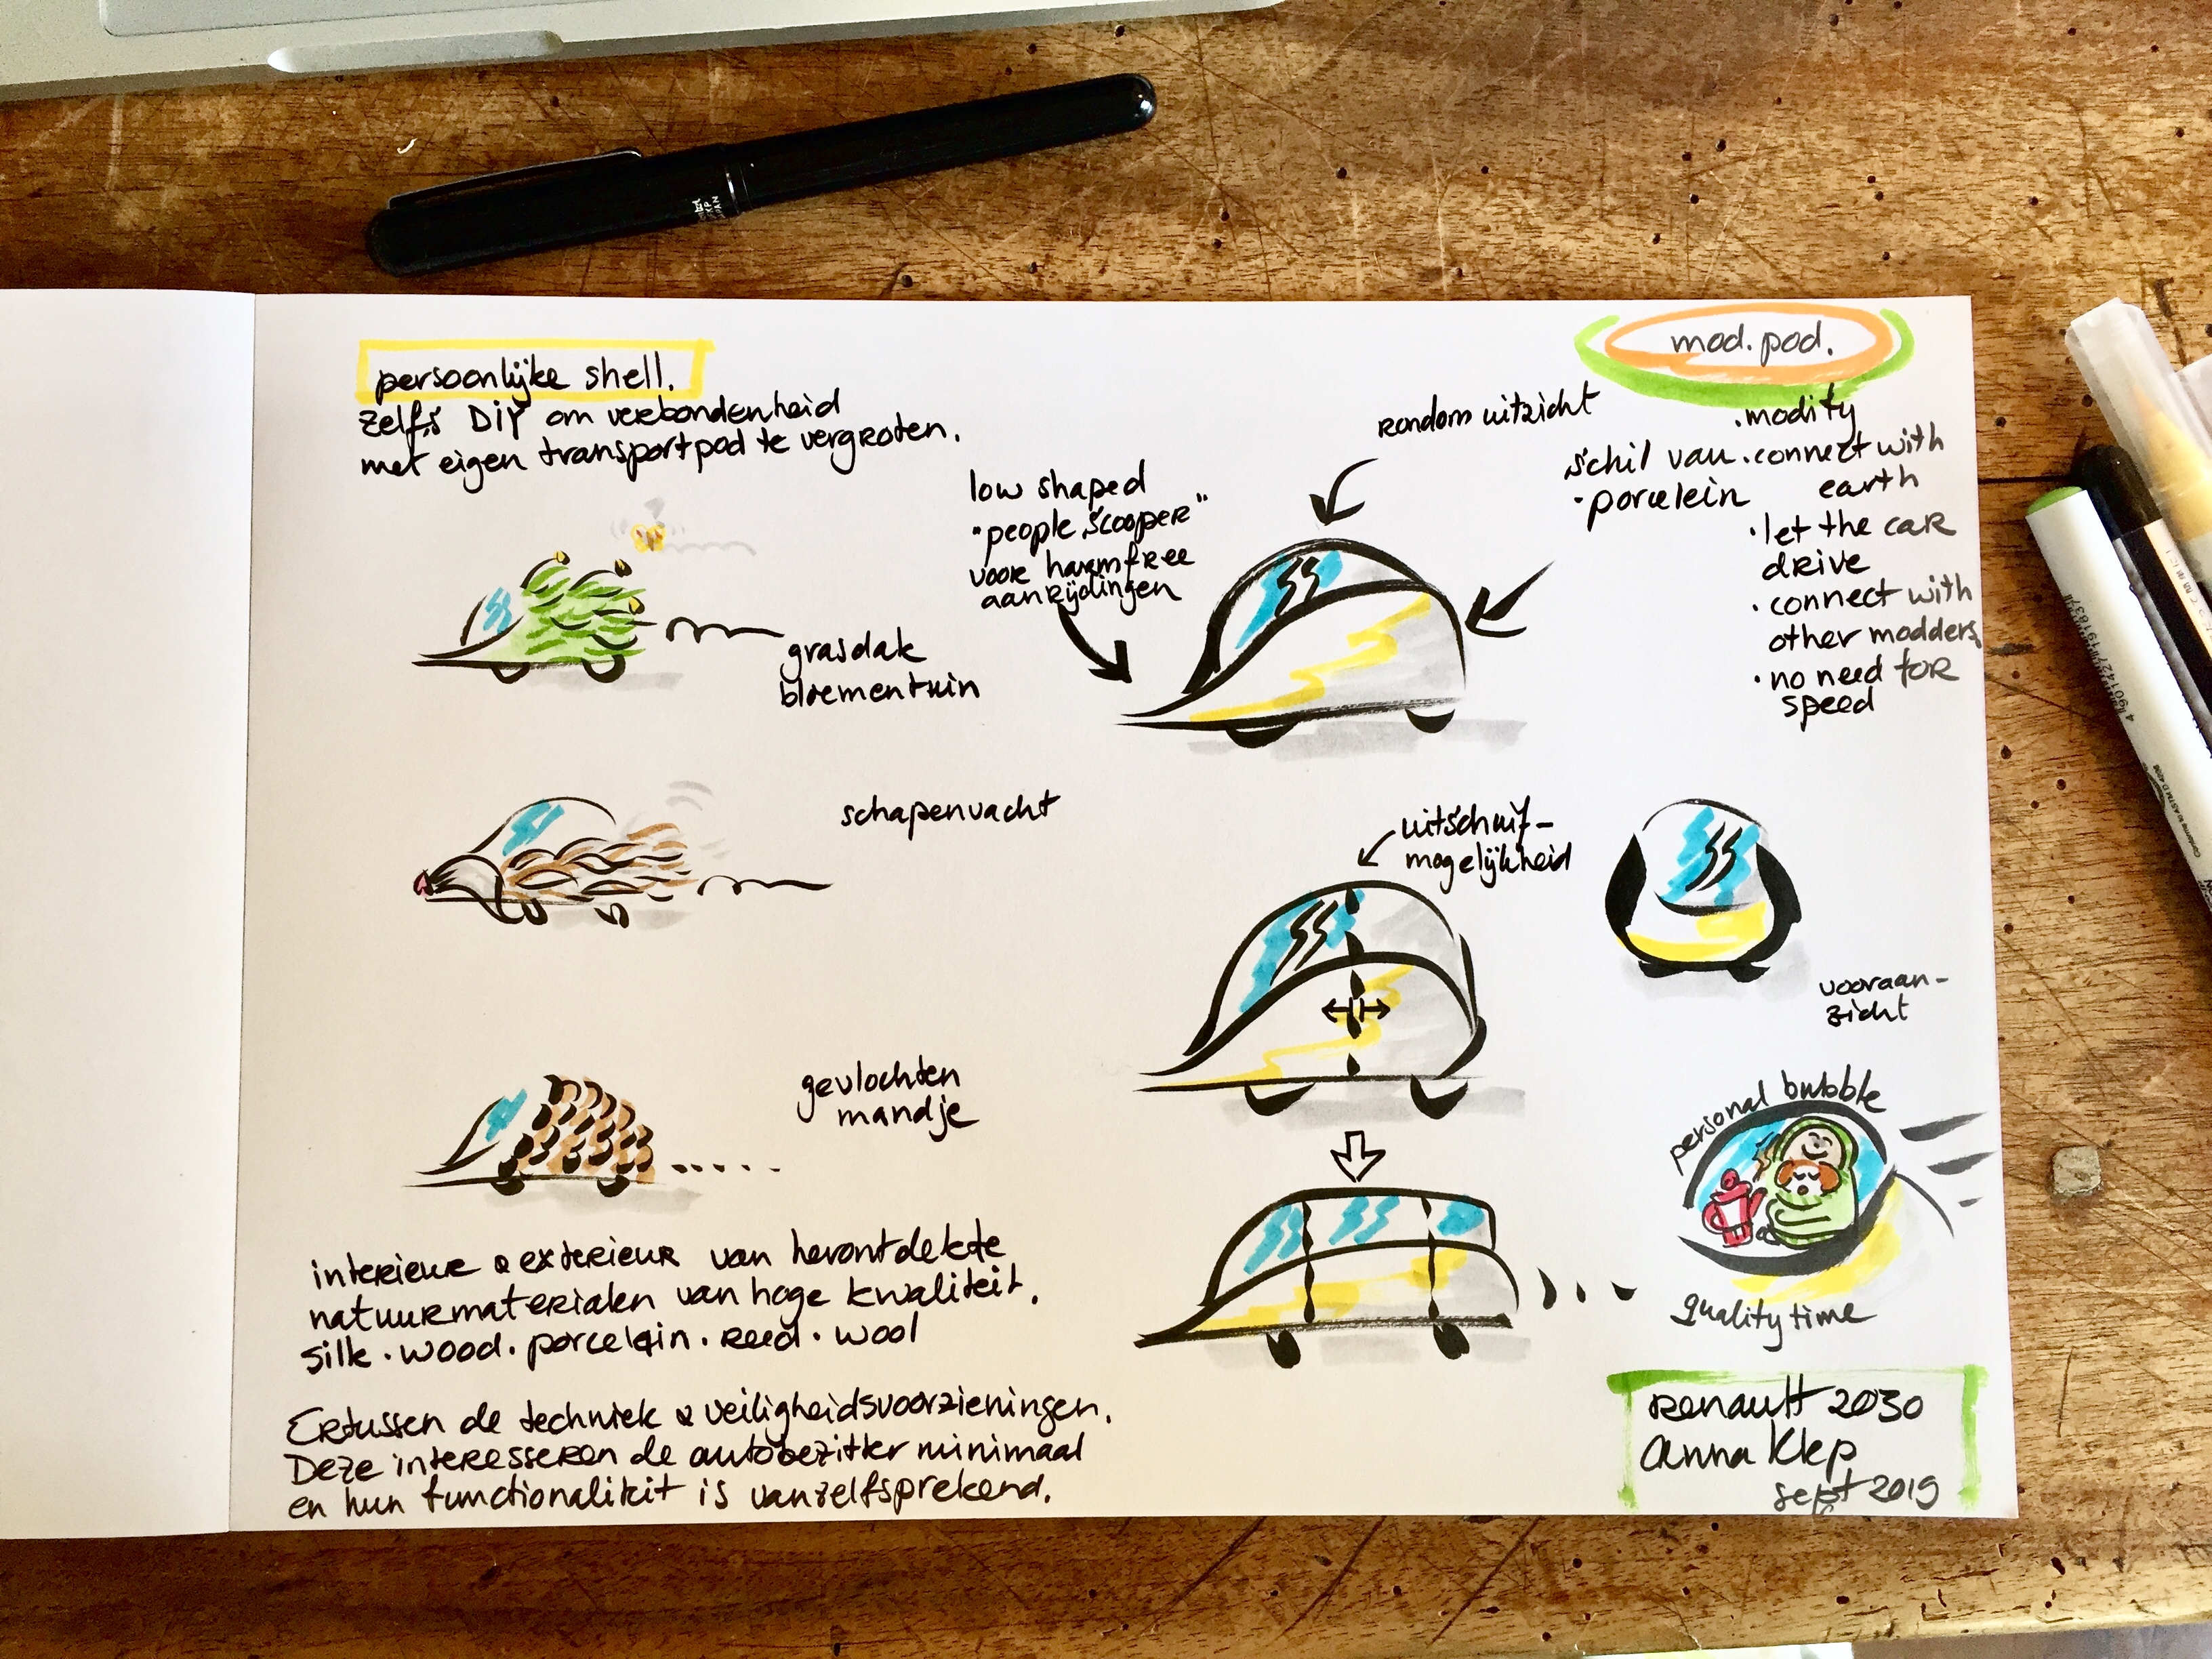 persoonlijke shell.
zelfs DiY om verbondenheid
met eigen transportpod te vergroten.
grasdak
bloementuin
schapenvacht
gevlochten
mandje
interieur & exterieur van herontdekte
natuurmaterialen van hoge kwaliteit.
silk . wood . porcelein . reed . wool
Ertussen de techniek & veiligheidsvoorzieningen.
Deze interesseren de autobezitter minimaal
en hun functionaliteit is vanzelfsprekend.
low shaped
"people scooper"
voor harmfree
aanrijdingen
rondom uitzicht
schil van
· porcelein
mod. pod.
· modify
· connect with
earth
· let the car
drive
· connect with
other modders
· no need for
speed
uitschuif-
mogelijkheid
vooraan-
zicht
personal bubble
quality time
renault 2030
anna klep
sept 2019